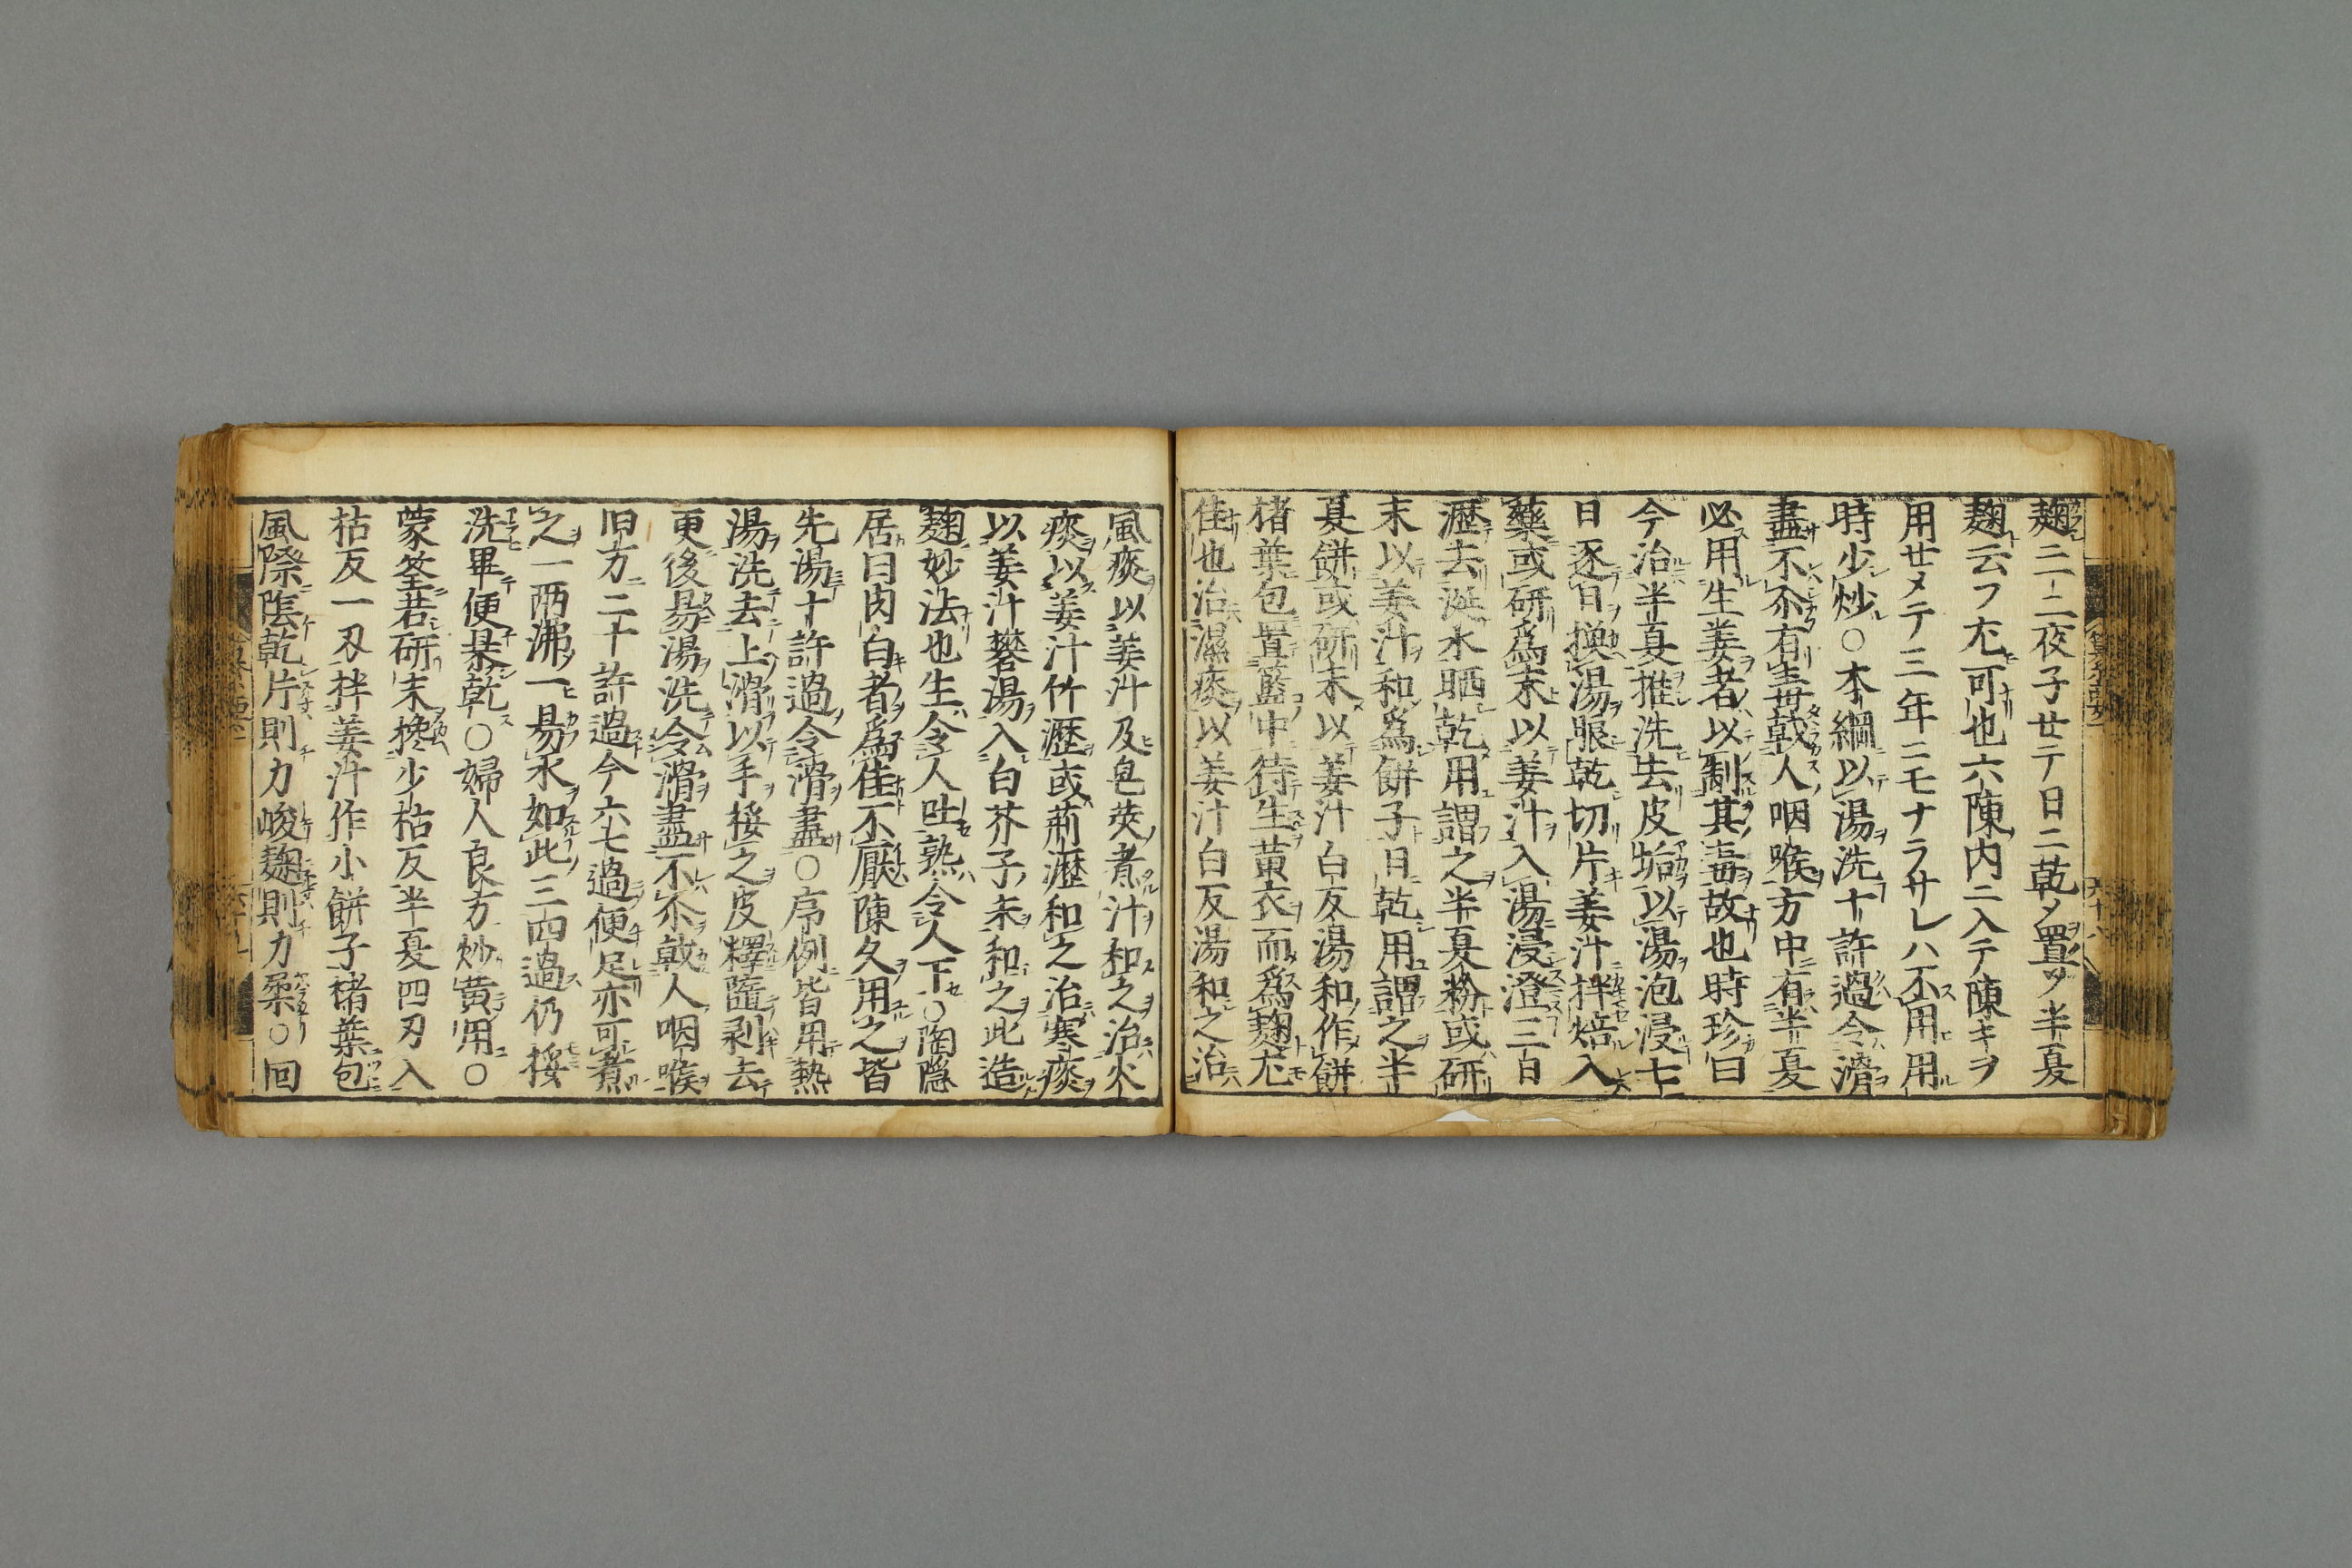 麹ニ二夜子セテ日ニ乾ノ置ヲ半夏
麹云フ尤可也六陳内ニ入テ陳キヲ
用セメテ三年ニモナラサレハ不用用
時少炒○本綱以湯洗十許過令滑
盡不尒有毒戟人咽喉方中有半夏
必用生姜者以制其毒故也時珍曰
今治半夏推洗去皮垢以湯泡浸七
日逐日換湯眼乾切片姜汁拌焙入
藥或研爲末以姜汁入湯浸澄三日
瀝去涎水晒乾用謂之半夏粉或研
末以姜汁和爲餅子日乾用謂之半
夏餅或研末以姜汁白反湯和作餅
楮葉包置藍中待生黄衣而爲麹尤
佳也治濕痰以姜汁白反湯和之治
風痰以姜汁及皂莢煮汁和之治火
痰以姜汁竹瀝或荊瀝和之治寒痰
以姜汁礬湯入白芥子末和之此造
麹妙法也生令人吐熟令人下○陶隠
居曰肉白者爲佳不厭陳久用之皆
先湯十許過令滑盡○序例皆用熱
湯洗去上滑以手挼之皮釋隨剥去
更後易湯洗令滑盡不尒戟人咽喉
旧方二十許過今六七過便足亦可煮
之一両沸一易水如此三四過仍挼
洗畢便暴乾○婦人良方炒黄用○
蒙筌若研末攙少枯反半夏四刄入
枯反一刄拌姜汁作小餅子楮葉包
風際陰乾片則力峻麹則力柔○回